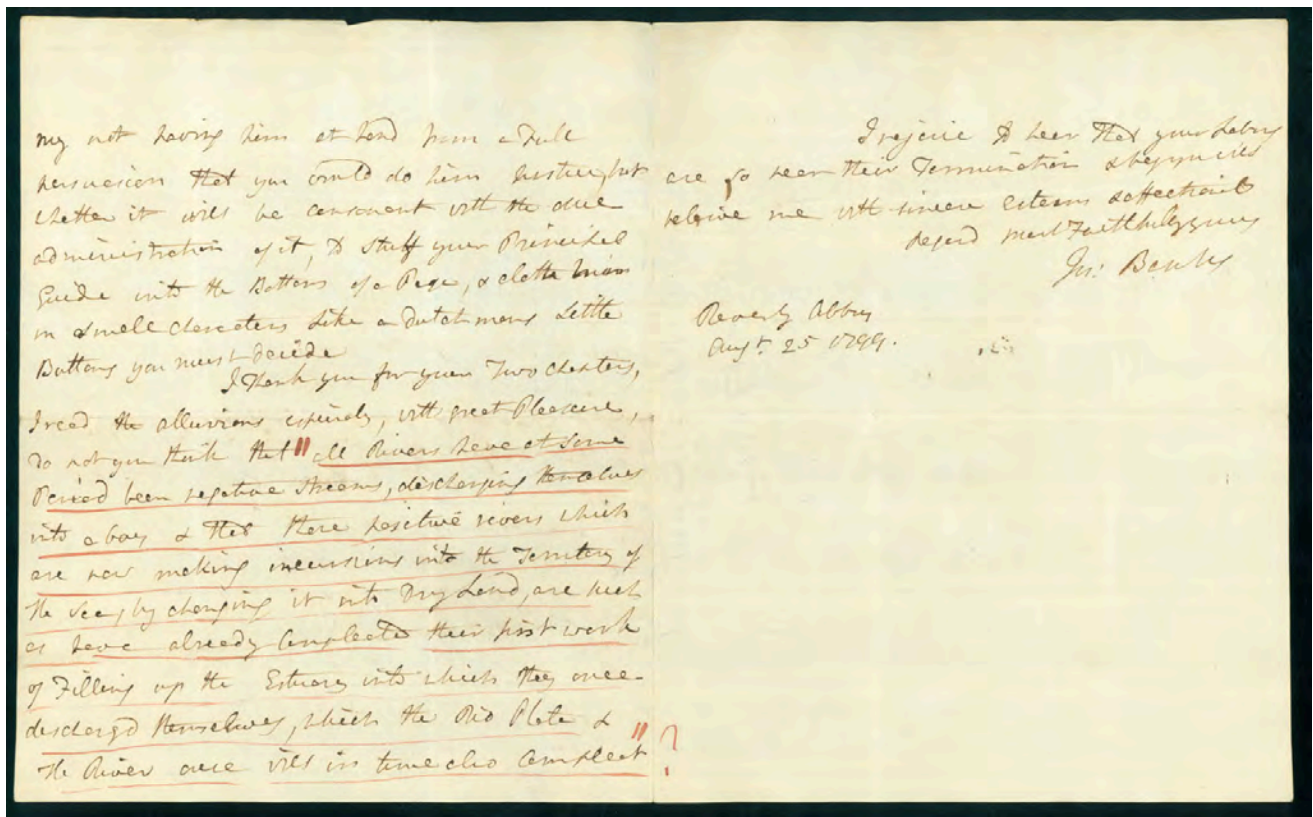 my not having him at hand from a Full
persuasion that you could do him Justice, but
whether it will be consonant with the due
administration of it, to stuff your Principal
Guide into the Bottom of a Page, & cloth him
in small characters Like a Dutchmans Little
Buttons you must decide
I Thank you for your Two chapters,
I read the alluvions, especialy, with great Pleasure,
do not you think that "all Rivers have at some
Period been negative streams, discharging themselves
into a bay & that those positive rivers which
are now making incursions into the Territory of
the Sea, by changing it into Dry Land, are such
as have already Compleated their first work
of Filling up the Estuary into which they once
dischargd themselves, which the Rio Plata &
the River will in time also compleat" ?
I rejoice to hear that your Labors
are so near their Termination &
beleive me with sincere Esteem & affectionate
Regard most Faithfully yours
Jos: Banks
Revesby Abbey
Augt. 25 1799.